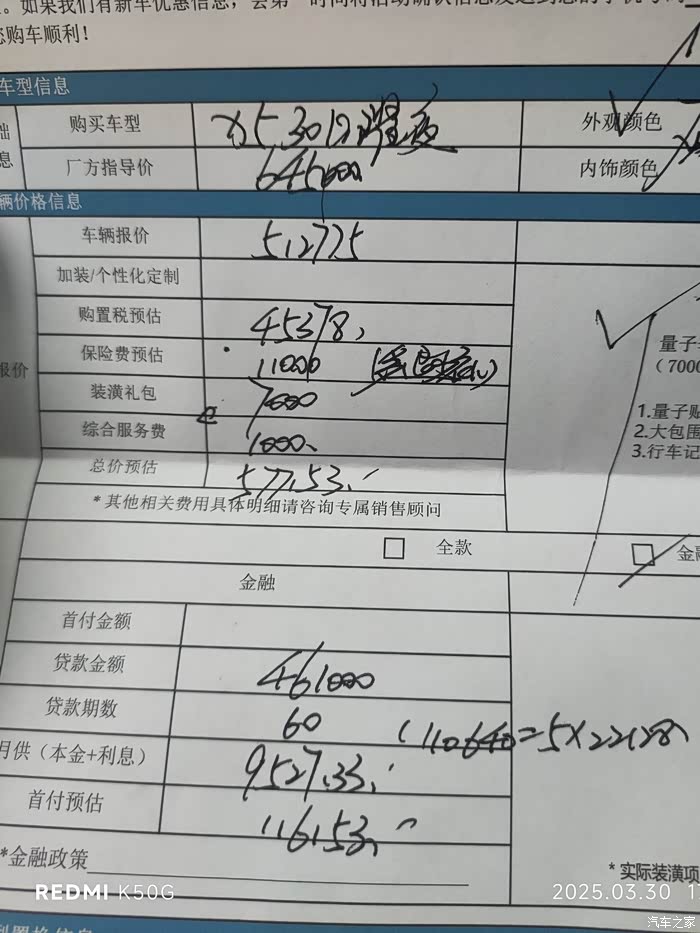 。如果我们有新车优惠信息,会第一时间将活动确认信息发送到您的手机号码
您购车顺利!
车型信息
购买车型 x5 30Li 尊享 外观颜色
厂方指导价 645000 内饰颜色
辆价格信息
车辆报价 512775
加装/个性化定制
购置税预估 45378
报价 保险费预估 11000
量子
(7000
装潢礼包 7000
综合服务费 1000
1.量子贴
2.大包围
3.行车记
总价预估 577153
*其他相关费用具体明细请咨询专属销售顾问
□ 全款 □ 金融
金融
首付金额
贷款金额 461000
贷款期数 60 (110640=5X22128)
月供(本金+利息) 9527.33
首付预估 116153
*金融政策
*实际装潢项
REDMI K50G 2025.03.30 1
汽车之家